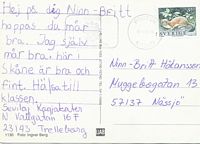 Hej på dig Ninn-Britt
hoppas du mår
bra. Jag själv
mår bra här i
Skåne är bra och
fint. Hälsa till
klassen.
N Vallgatan 16 F
23143 Trelleborg
SVERIGE
Ninn-Britt Håkansson
Muggebogatan 13
57137 Nässjö
Foto: Ingmar Berg